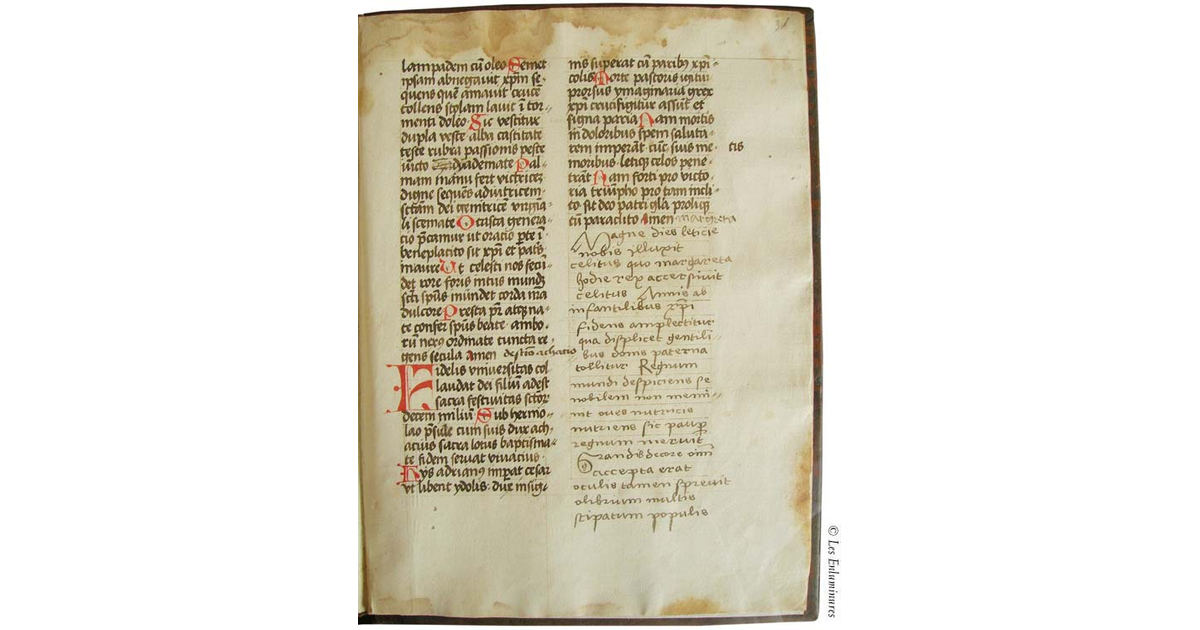 lampadem cũ oleo Semet
ipsam abnegauit xp̃m se-
quens quẽ amauit crucẽ
collens stolam lauit ĩ tor-
menti doleo Sic vestitur
dupla veste alba castitate
teste rubra passionis peste
uicto dyademate Pal-
mam manu fert victricẽ
digne sequẽs adiutricem
sctãm dei genitricẽ virgia-
li scemate O casta genera-
cio p̃camur ut oratio p̃te ĩ
beneplacito sit xp̃i et pat̃s
Ut celesti nos fecũ-
det rore foris intus mundẽ
scti spũs mundet corda nr̃a
dulcore Presta pr̃ atqꝫ na-
te confer spũs beate ambo-
rũ nexꝰ ordinate cuncta re-
gens secula Amen de sctõ achacio
Fidelis vniuersitas col
laudat dei filiũ adest
sacra festiuitas sctor̃
decem miliũ Sub hermo-
lao p̃sule cum suis dux ach-
acius sacra lotus baptisma-
te fidem seruat viuacius
Hys adrianꝰ imp̃at cesar
vt libent ydolis dux insig-
31
nis superat cũ paribꝫ xp̃i-
colis Morte pastoris igitur
prorsus ymaginaria grex
xp̃i crucifigitur assũt et
signa paria Nam mortis
in doloribus spem saluta-
rem imperãt cũc suis me- tis
moribus letiqꝫ celos pene-
trãt Nam forti pro victo-
ria triũpho pro tam incli-
to sit deo patri gl̃a prolique
cũ paraclito Amen margreta
Magne dies leticie
nobis illuxit
celitus quo margareta
hodie rex accersiuit
celitus Annis ab
infantilibus xp̃i
fidens amplectitur
qua displicet gentili-
bus domo paterna
tollitur Regnum
mundi despiciens se
nobilem non memi-
nit oues nutricis
nutriens sic paup̃
regnum meruit
Grandis decore om̃i
accepta erat
oculis tamen spreuit
olibrium multis
stipatum populis
© Les Enluminures